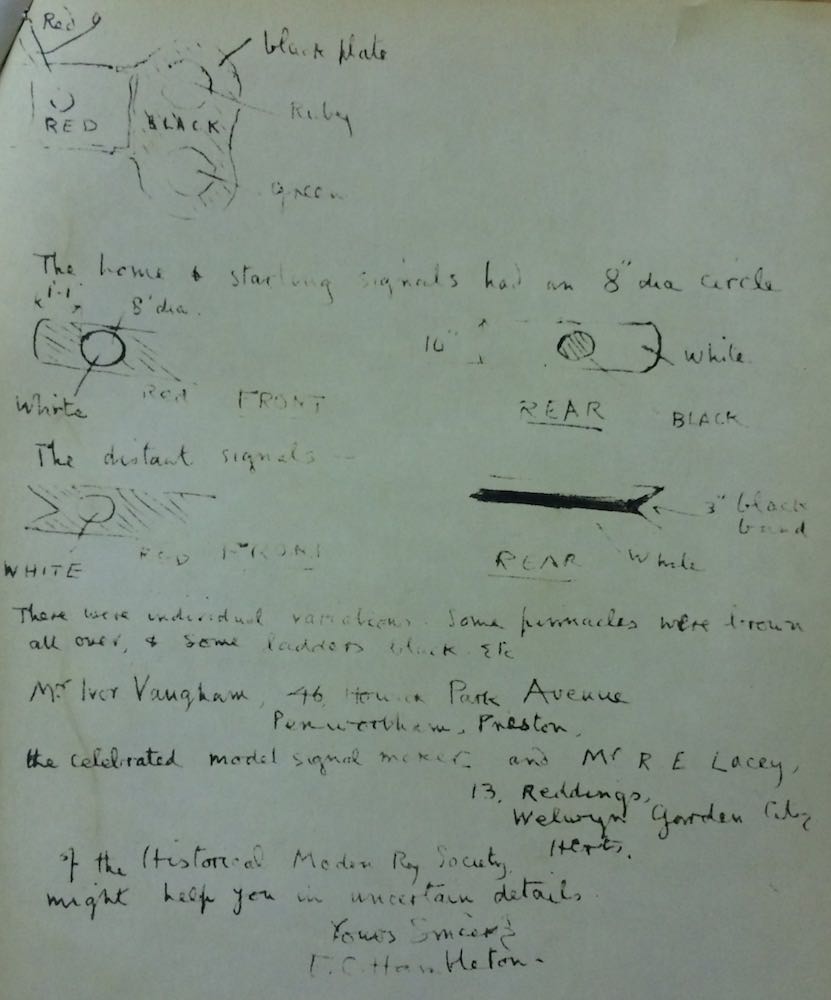 Red
black plate
RED
BLACK
Ruby
Green
The home & starting signals had an 8" dia circle
1'-1"
8" dia.
White
Red
FRONT
10"
White
REAR
BLACK
The distant signals
WHITE
RED FRONT
3" black
band
REAR
White
There were individual variations. Some pinnacles were brown
all over, & some ladders black. Etc
Mr Ivor Vaugham, 46 Park Avenue
Penwortham, Preston,
the celebrated model signal maker and Mr R E Lacey,
13, Reddings,
Welwyn Garden City
Herts.
of the Historical Model Rly Society,
might help you in uncertain details.
Yours
F.C. Hambleton.